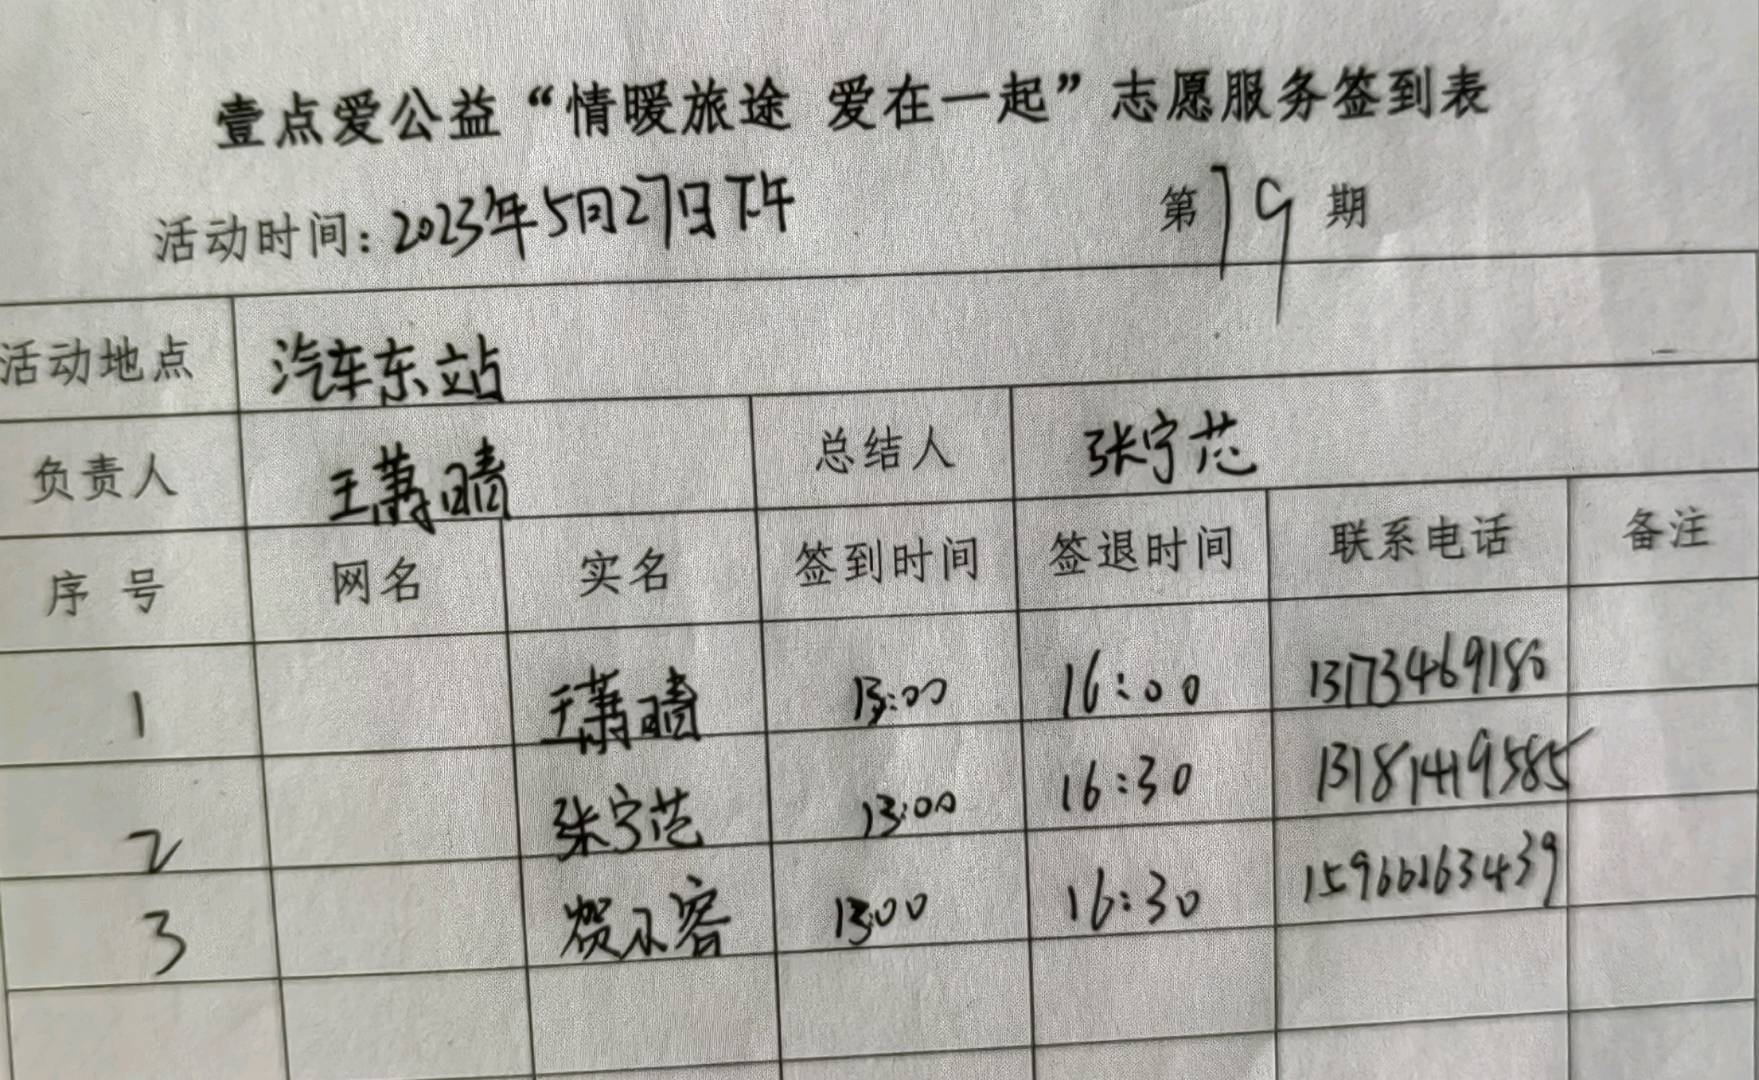 壹点爱公益“情暖旅途 爱在一起”志愿服务签到表
活动时间：2023年5月27日下午 第79期
活动地点 汽车东站
负责人 王萧晴 总结人 张宇芯
序号 网名 实名 签到时间 签退时间 联系电话 备注
1 王萧晴 13:00 16:00 13173469180
2 张宇芯 13:00 16:30 13181419585
3 贺小容 13:00 16:30